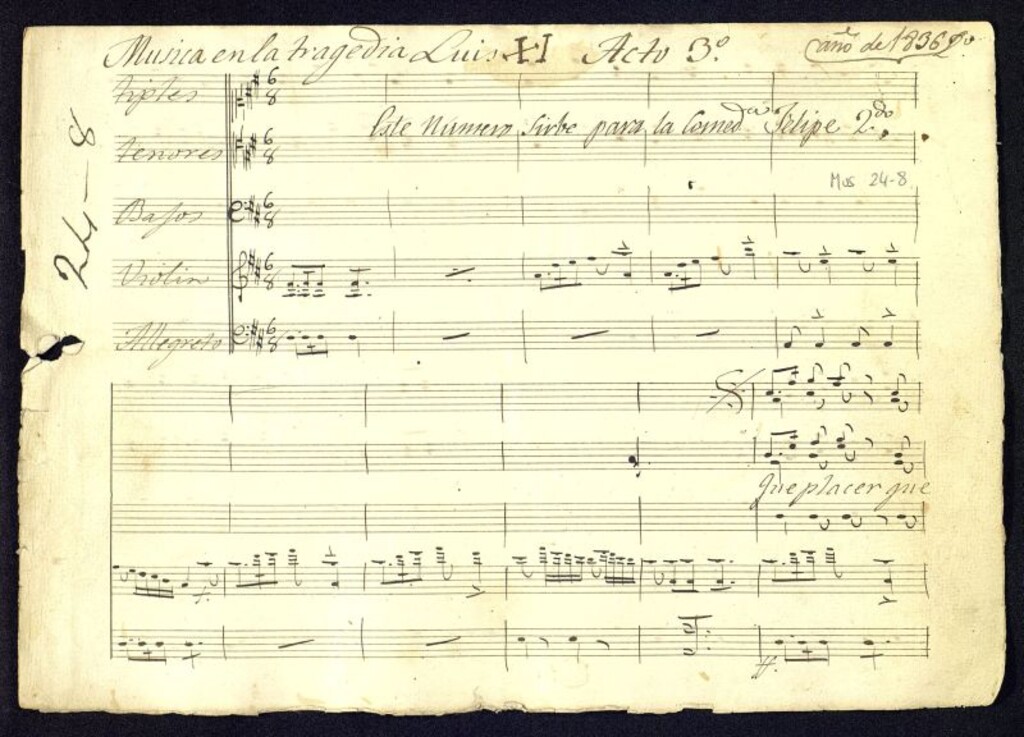 Musica en la tragedia Luis XI Acto 3º
año de 1836
tiples
Este Numero sirbe para la Comed.ª Felipe 2.do
24-8
tenores
Mus 24-8
Bajos
Violin
Allegreto
Que placer que